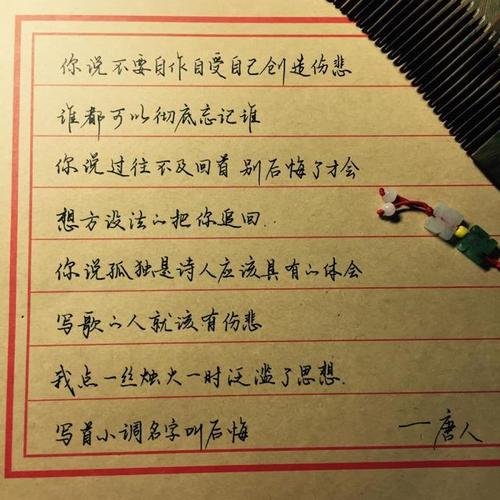 你说不要自作自受自己创造伤悲
谁都可以彻底忘记谁
你说过往不及回首 别后悔了才会
想方设法的把你追回..
你说孤独是诗人应该具有的体会
写歌的人就该有伤悲
我点一丝烛火一时泛滥了思想.
写首小调名字叫后悔 一唐人